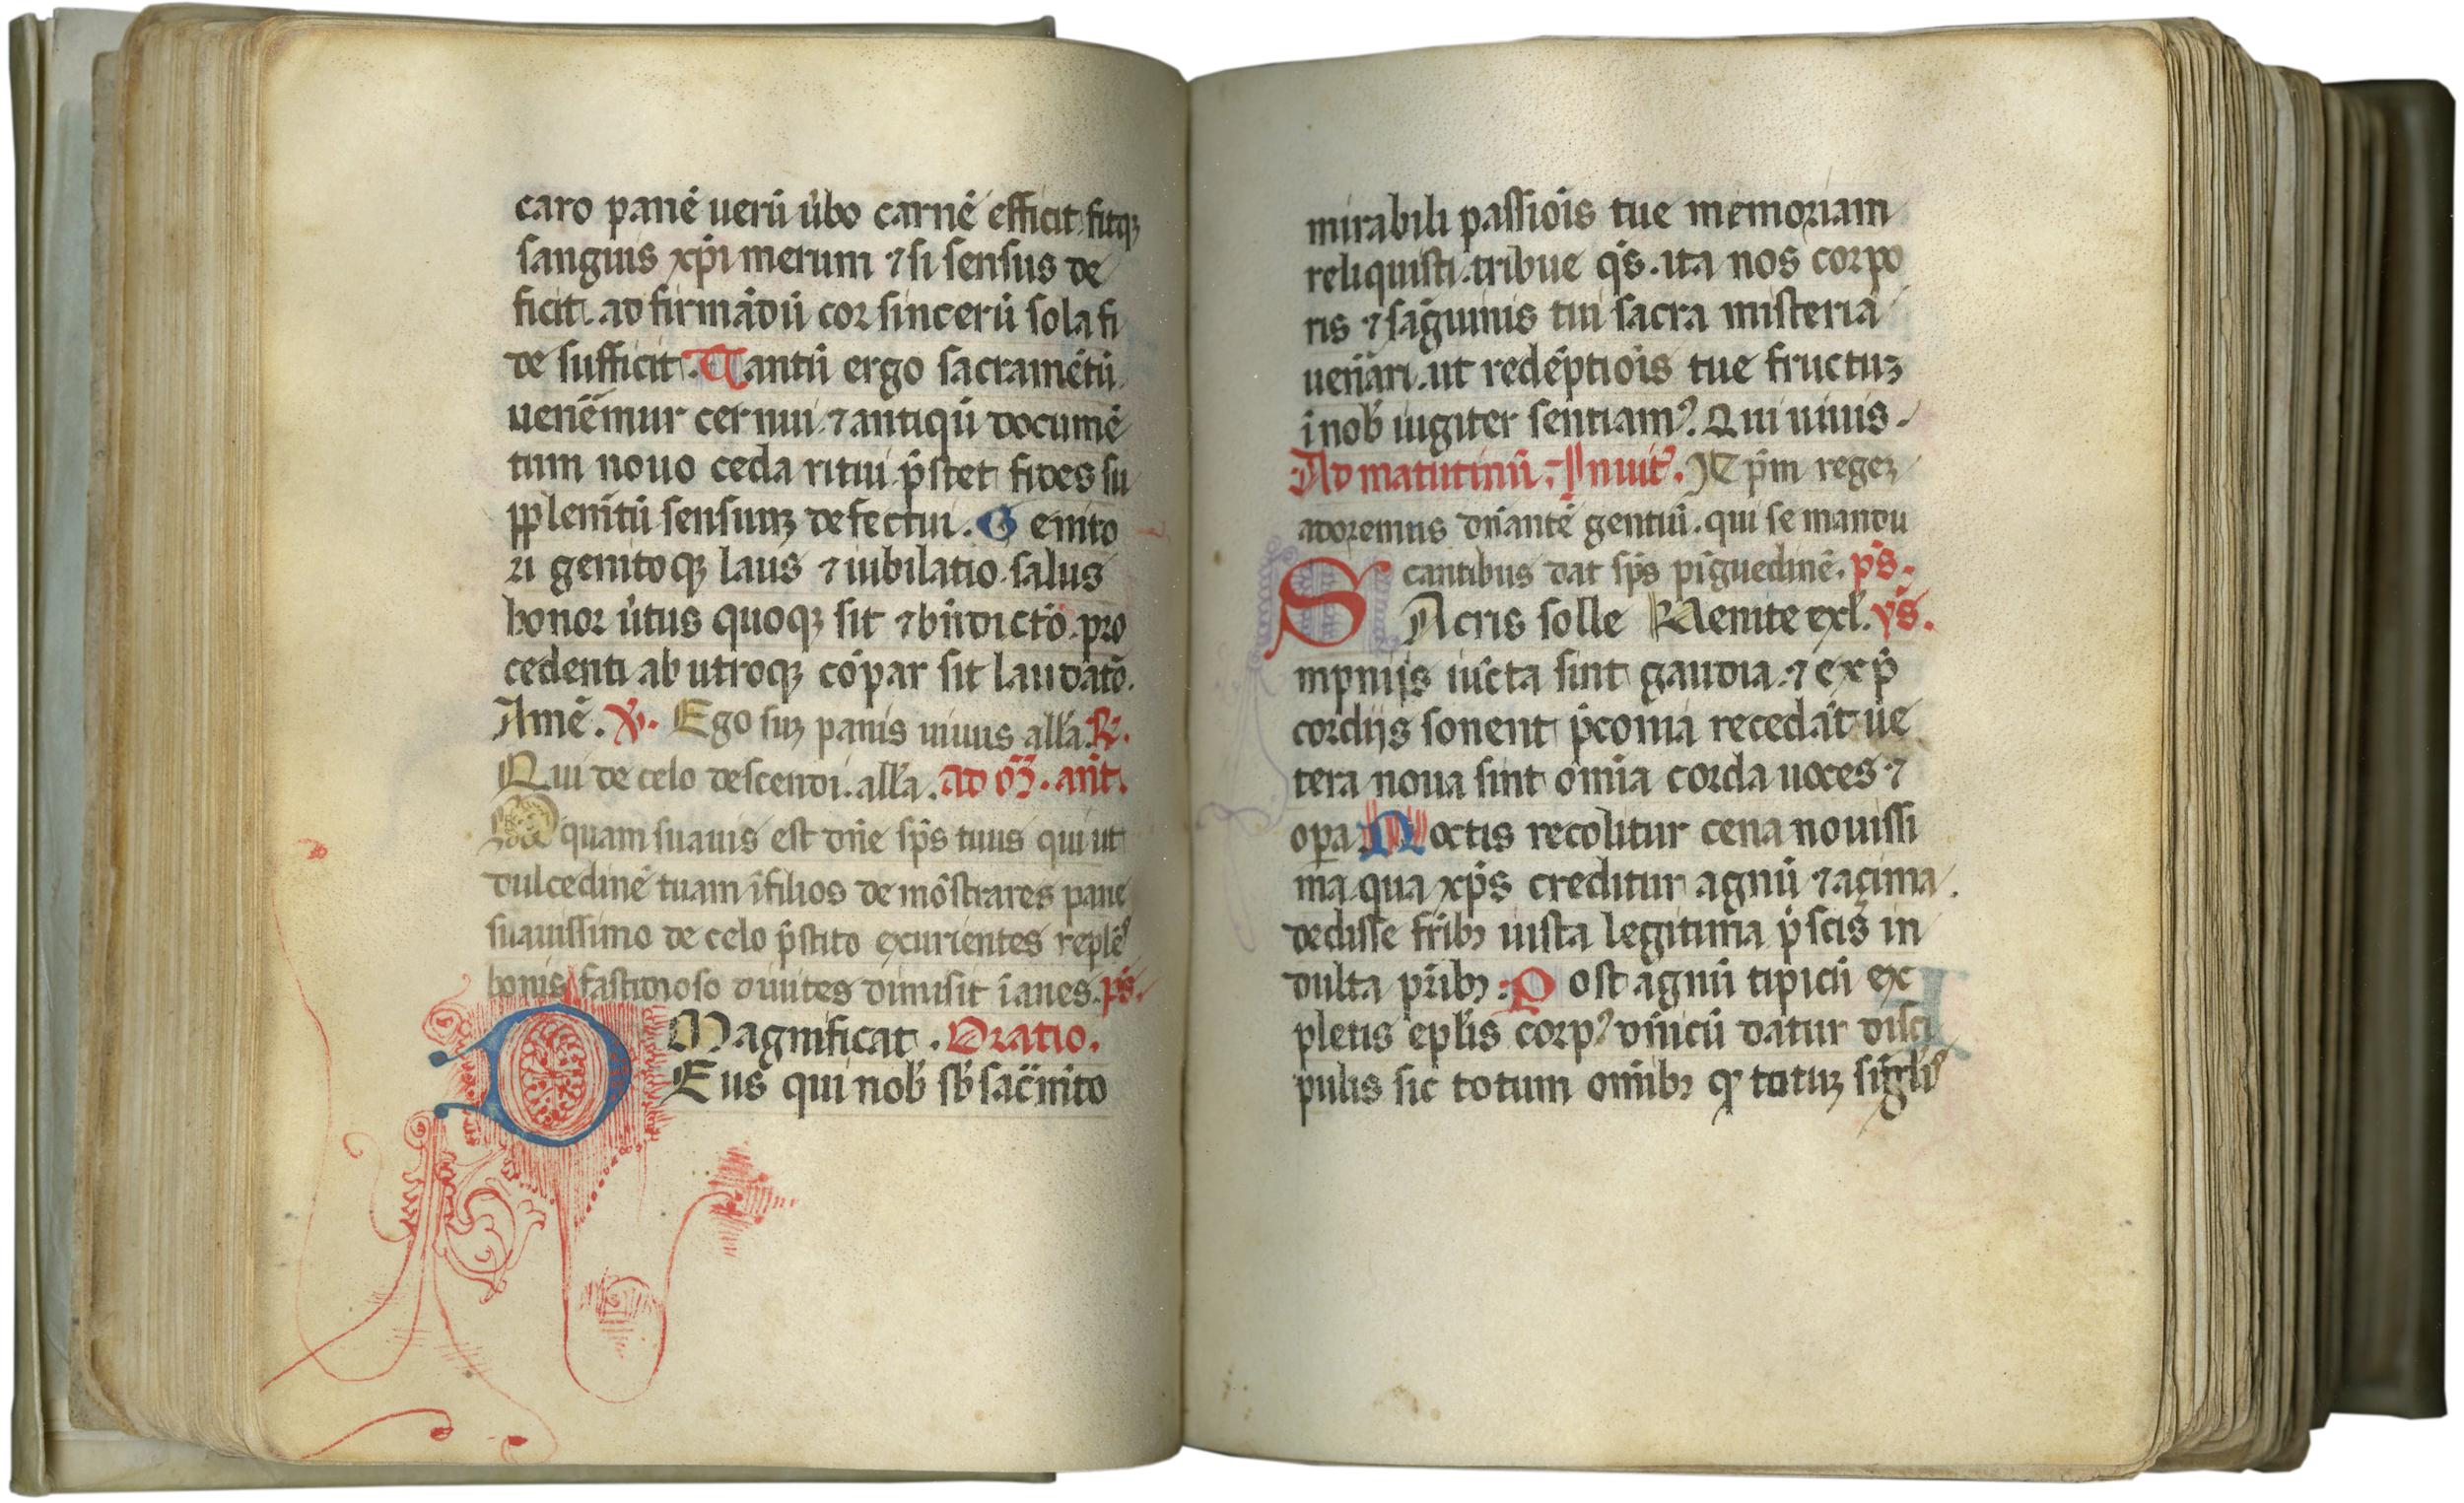 caro panē uerū űbo carnē efficit. fitqꝫ
sanguis xp̄i merum ⁊ si sensus de
ficit. ad firmādū cor sincerū sola fi
de sufficit. Tantū ergo sacramētū
uen̄emur cernui. ⁊ antiqū documē
tum nouo ceda ritui. p̄stet fides su
pplem̄tū sensuum defectui. Genito
ri genitoqꝫ laus ⁊ iubilatio. salus
honor űtus quoqꝫ sit ⁊ bn̄dictō. pro
cedenti ab utroqꝫ cōpar sit laudatō.
Amē. ℣. Ego suꝫ panis uiuus alla. ℟.
Qui de celo descendi. alla. ad m̄. ant̄.
O quam suauis est dn̄e sp̄s tuus qui ut
dulcedinē tuam ī filios demōstrares pane
suauissimo de celo p̄stito exurientes replēs
bonis fastidioso diuites dimisit īanes. ps̄.
Magnificat. Oratio.
DEus qui nob̄ sb̄ sac̄m̄to
mirabili passiōis tue memoriam
reliquisti. tribue qs̄. ita nos corpo
ris ⁊ sāguinis tui sacra misteria
uen̄ari. ut redēptiōis tue fructuꝫ
ī nob̄ iugiter sentiamꝰ. Qui uiuis.
Ad matutinū. Inuit̄. Xp̄m regeꝫ
adoremus dn̄antē gentiū. qui se mandu
cantibus dat sp̄s pīguedinē. ps̄.
SAcris solle Uenite exl. ys̄.
mpniis iūcta sint gaudia. ⁊ ex p̄
cordiis sonent p̄conia recedāt ue
tera noua sint ōmia corda uoces ⁊
opa. Noctis recolitur cena nouissi
ma qua xp̄s creditur agnū ⁊ açima
dedisse frībꝫ iusta legitima p̄scis in
dulta p̄ribꝫ. Post agnū tipicū ex
pletis epl̄is corpꝰ dn̄icū datur disci
pulis sic totum om̄ibꝫ qꝫ totuꝫ singl̄is